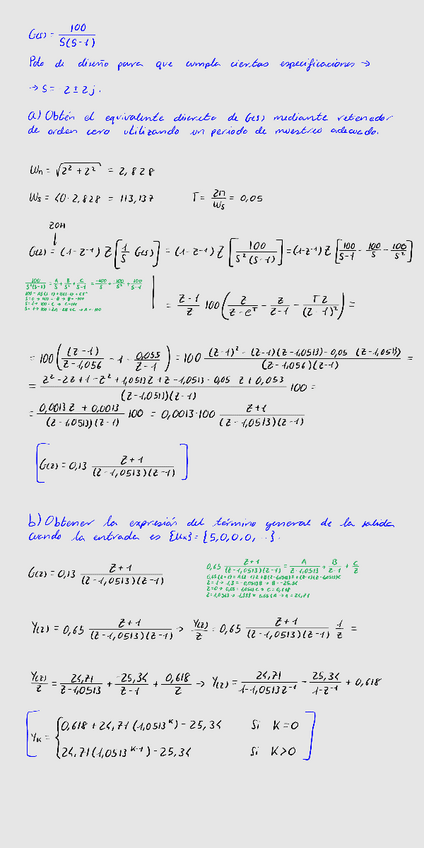 G(s) = 100 / S(S-1)
Polo de diseño para que cumpla ciertas especificaciones →
→ S = 2 ± 2j.
a) Obtén el equivalente discreto de G(s) mediante retenedor
de orden cero utilizando un periodo de muestreo adecuado.
Wn = √(2² + 2²) = 2,828
Ws = 40 · 2,828 = 113,137 T = 2π / Ws = 0,05
ZOH
G(z) = (1 - z⁻¹) Z [1/S G(s)] = (1 - z⁻¹) Z [100 / S²(S-1)] = (1-z⁻¹) Z [100/S-1 - 100/S - 100/S²]
= z-1 / z 100 (z / z-e^T - z / z-1 - Tz / (z-1)²) =
= 100 ((z-1) / z-1,056 - 1 - 0,055 / z-1) = 100 (z-1)² - (z-1)(z-1,0513) - 0,05 (z-1,0513) / (z-1,056)(z-1) =
= z² - 2z + 1 - z² + 1,0513z + z - 1,0513 - 0,05z + 0,053 / (z-1,0513)(z-1) 100 =
= 0,0013z + 0,0013 / (z-1,0513)(z-1) 100 = 0,0013·100 z+1 / (z-1,0513)(z-1)
G(z) = 0,13 z+1 / (z-1,0513)(z-1)
b) Obtener la expresión del término general de la salida
cuando la entrada es {Uk} = {5,0,0,0, ...}.
G(z) = 0,13 z+1 / (z-1,0513)(z-1)
0,65 z+1 / (z-1,0513)(z-1)z = A / z-1,0513 + B / z-1 + C / z
Y(z) = 0,65 z+1 / (z-1,0513)(z-1) → Y(z)/z = 0,65 z+1 / (z-1,0513)(z-1) 1/z =
Y(z)/z = 24,71 / z-1,0513 + -25,34 / z-1 + 0,618 / z → Y(z) = 24,71 / 1-1,0513z⁻¹ - 25,34 / 1-z⁻¹ + 0,618
Yk = { 0,618 + 24,71(1,0513^k) - 25,34 Si K=0
24,71(1,0513^k-1) - 25,34 Si K>0